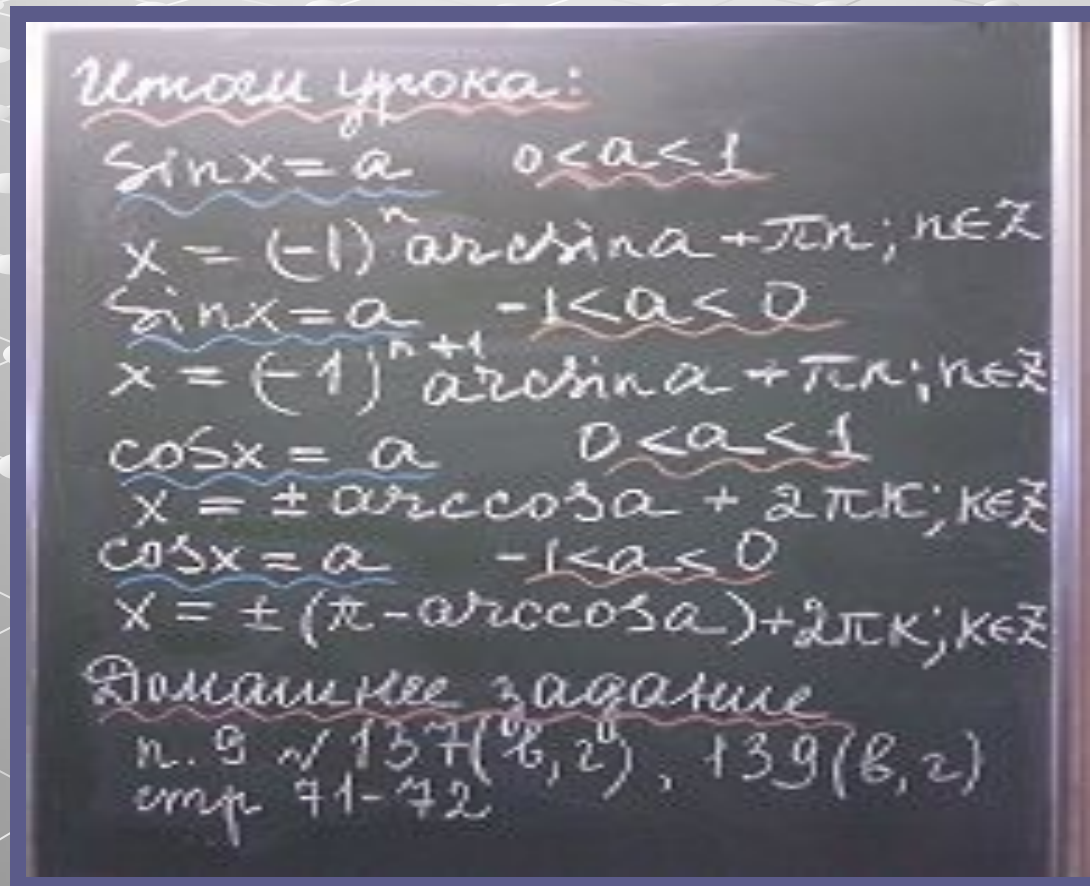 Итоги урока:
sinx = a 0<a<1
x = (-1)ⁿ arcsina + πn; n∈Z
sinx = a -1<a<0
x = (-1)ⁿ⁺¹ arcsina + πn; n∈Z
cosx = a 0<a<1
x = ± arccosa + 2πк; к∈Z
cosx = a -1<a<0
x = ± (π-arccosa)+2πк; к∈Z
Домашнее задание
п. 9 √ 137(в, г), 139(в, г)
стр 71-72